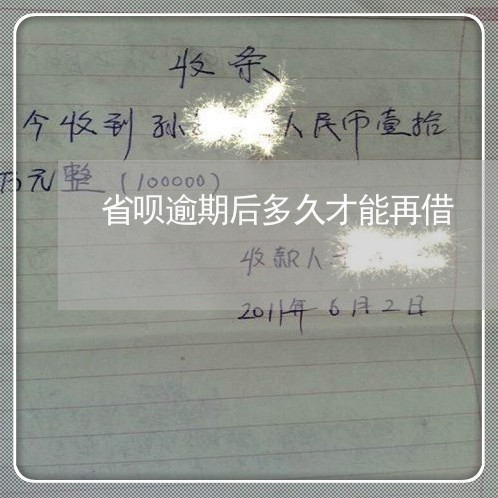 收条
今收到孙 人民币壹拾
万元整(100000)
省呗逾期后多久才能再借
收款人
2011年6月2日